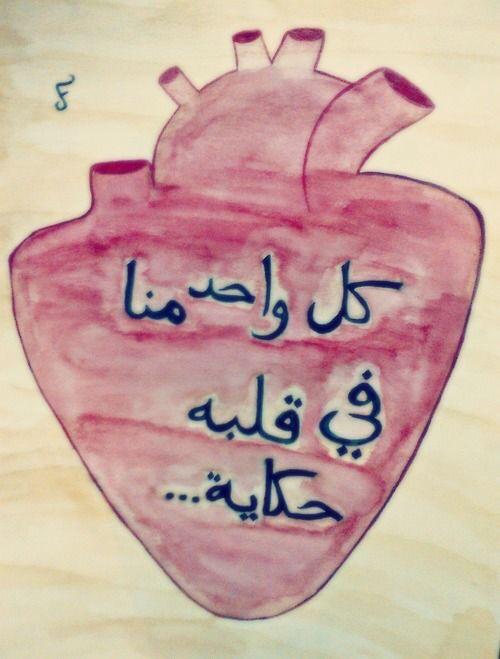 كل واحد منا
في قلبه
حكاية...